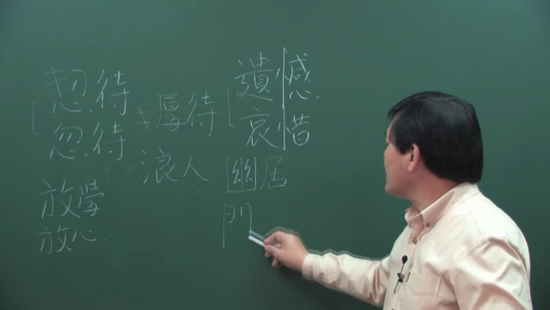 恝待
忽待
厚待
浪人
放學
放心
遺憾
哀惜
幽居
門